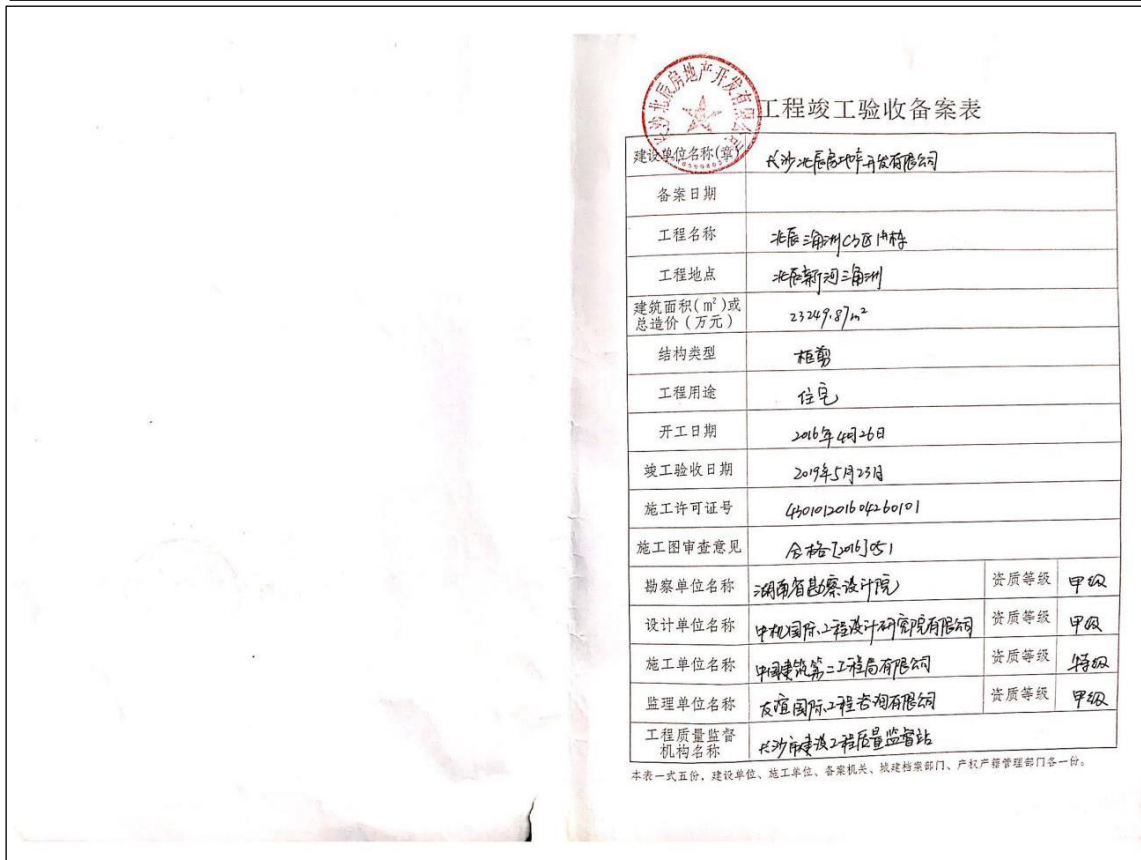 长沙北辰房地产开发有限公司
工程竣工验收备案表
建设单位名称(章) 长沙北辰房地产开发有限公司
备案日期
工程名称 北辰三角洲C3区
工程地点 北辰新河三角洲
建筑面积(m²)或
总造价(万元) 23249.87m²
结构类型 框剪
工程用途 住宅
开工日期 2016年4月26日
竣工验收日期 2019年5月23日
施工许可证号 430101201604260101
施工图审查意见 合格[2016]051
勘察单位名称 湖南省勘察设计院 资质等级 甲级
设计单位名称 中机国际工程设计研究院有限公司 资质等级 甲级
施工单位名称 中国建筑第二工程局有限公司 资质等级 特级
监理单位名称 友谊国际工程咨询有限公司 资质等级 甲级
工程质量监督
机构名称 长沙市建设工程质量监督站
本表一式五份，建设单位、施工单位、备案机关、城建档案部门、产权产籍管理部门各一份。